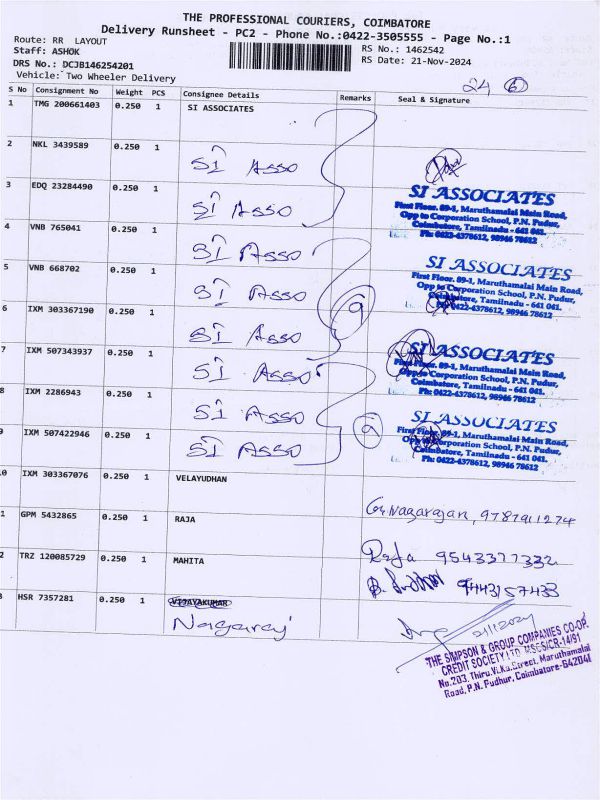 THE PROFESSIONAL COURIERS, COIMBATORE
Delivery Runsheet - PC2 - Phone No.:0422-3505555 - Page No.:1
Route: RR LAYOUT
RS No.: 1462542
Staff: ASHOK
RS Date: 21-Nov-2024
DRS No.: DCJB146254201
Vehicle: Two Wheeler Delivery
24 6
S No Consignment No Weight PCS Consignee Details Remarks Seal & Signature
1 TMG 200661403 0.250 1 SI ASSOCIATES
2 NKL 3439589 0.250 1 SI Asso
3 EDQ 23284490 0.250 1 SI Asso
SI ASSOCIATES
First Floor. 89-1, Maruthamalai Main Road,
Opp to Corporation School, P.N. Pudur,
Coimbatore, Tamilnadu - 641 041.
Ph: 0422-4378612, 98946 78612
4 VNB 765041 0.250 1 SI Asso
5 VNB 668702 0.250 1 SI Asso
SI ASSOCIATES
First Floor. 89-1, Maruthamalai Main Road,
Opp to Corporation School, P.N. Pudur,
Coimbatore, Tamilnadu - 641 041.
Ph: 0422-4378612, 98946 78612
6 IXM 303367190 0.250 1 SI Asso 9
7 IXM 507343937 0.250 1 SI Asso
SI ASSOCIATES
First Floor. 89-1, Maruthamalai Main Road,
Opp to Corporation School, P.N. Pudur,
Coimbatore, Tamilnadu - 641 041.
Ph: 0422-4378612, 98946 78612
8 IXM 2286943 0.250 1 SI Asso
9 IXM 507422946 0.250 1 SI Asso 9
SI ASSOCIATES
First Floor. 89-1, Maruthamalai Main Road,
Opp to Corporation School, P.N. Pudur,
Coimbatore, Tamilnadu - 641 041.
Ph: 0422-4378612, 98946 78612
0 IXM 303367076 0.250 1 VELAYUDHAN
Nagarajan, 9787911274
1 GPM 5432865 0.250 1 RAJA
Raja 9543377332
2 TRZ 120085729 0.250 1 MAHITA
9443157433
3 HSR 7357281 0.250 1 VIJAYAKUMAR
Nagaraj
21/11/2024
THE SIMPSON & GROUP COMPANIES CO-OP.
CREDIT SOCIETY LTD. MSCS/CR-14/91
No.203, Thiru.Vi.Ka.Street, Maruthamalai
Road, P.N. Pudhur, Coimbatore-642041